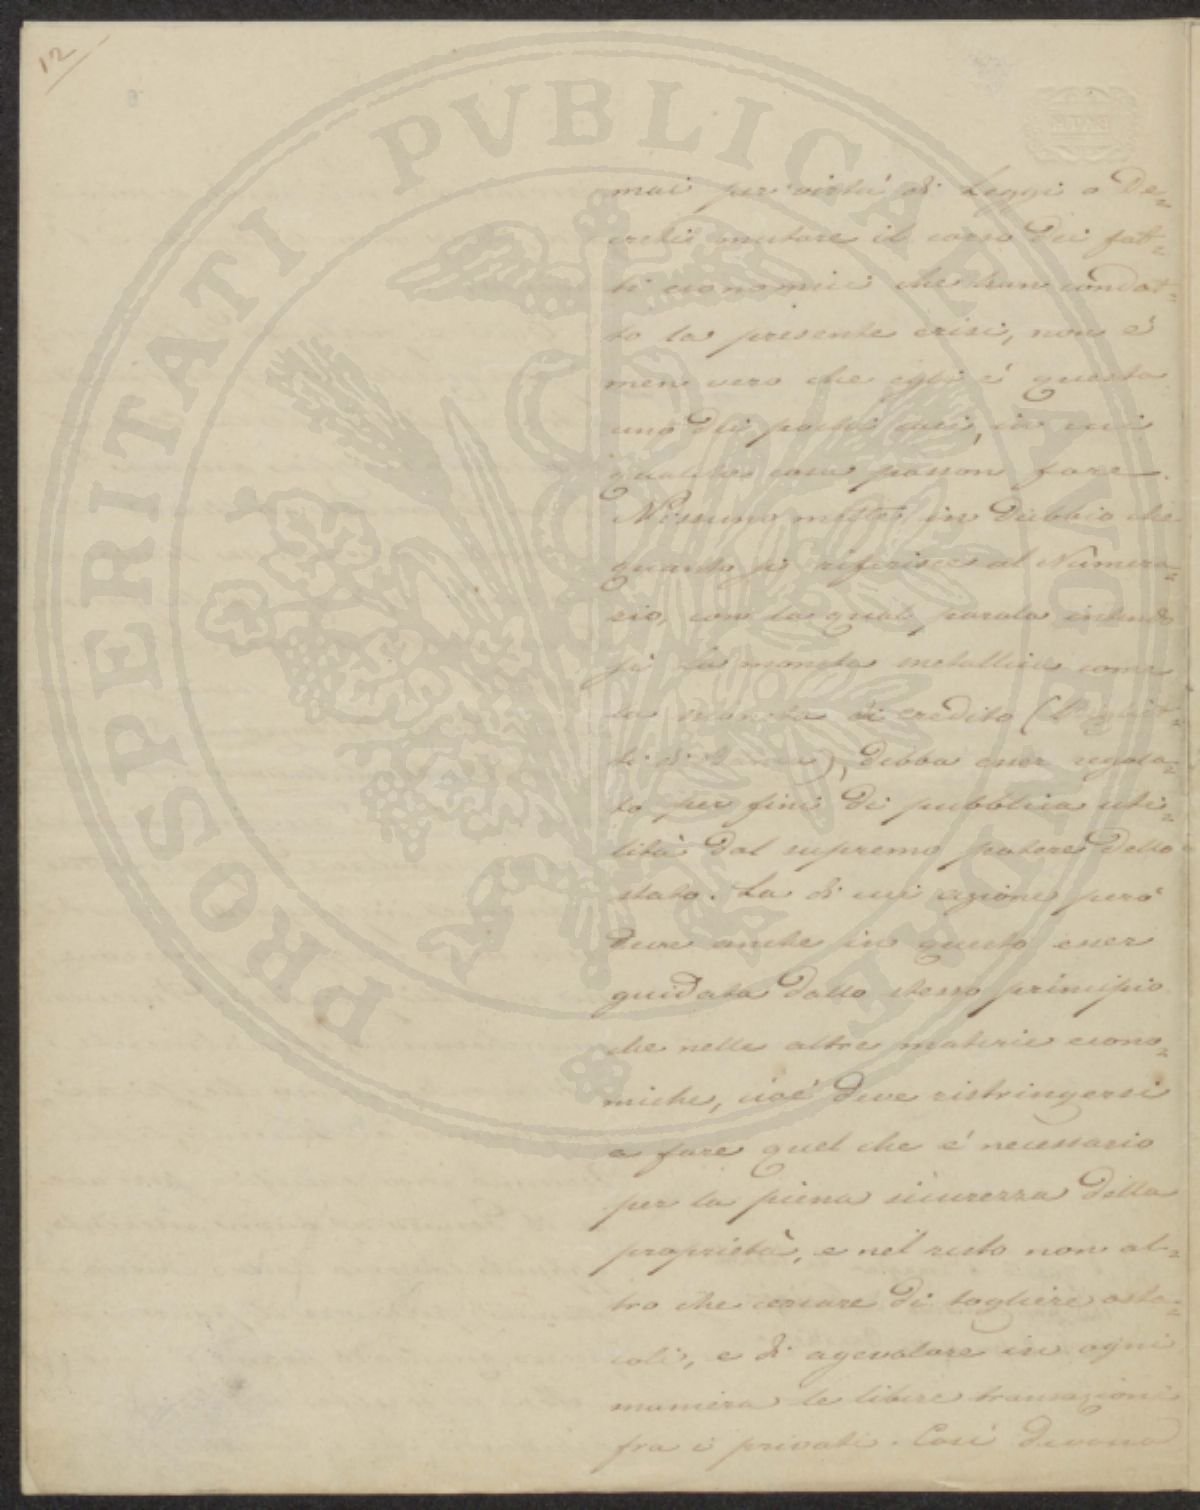 12
PROSPERITATI PVBLICAE AVGENDAE
mai per virtù di Leggi o De=
creti mutare il corso dei fat=
ti economici che han condot=
to la presente crisi, non è
men vero che egli è questo
uno dei pochi casi, in cui
qualche cosa posson fare.
Nissuno mette in dubbio che
quanto si riferisce al Numera=
rio, con la quale parola intendo
sì la moneta metallica come
la moneta di credito (Bigliet=
ti di Banca), debba esser regola=
to per fini di pubblica uti=
lità dal supremo potere dello
stato. La di cui azione però
deve anche in questo esser
guidata dallo stesso principio
che nelle altre materie econo=
miche, cioè deve ristringersi
a fare quel che è necessario
per la piena sicurezza della
proprietà, e nel resto non al=
tro che cercare di togliere osta=
coli, e di agevolare in ogni
maniera le libere transazioni
fra i privati. Così devono